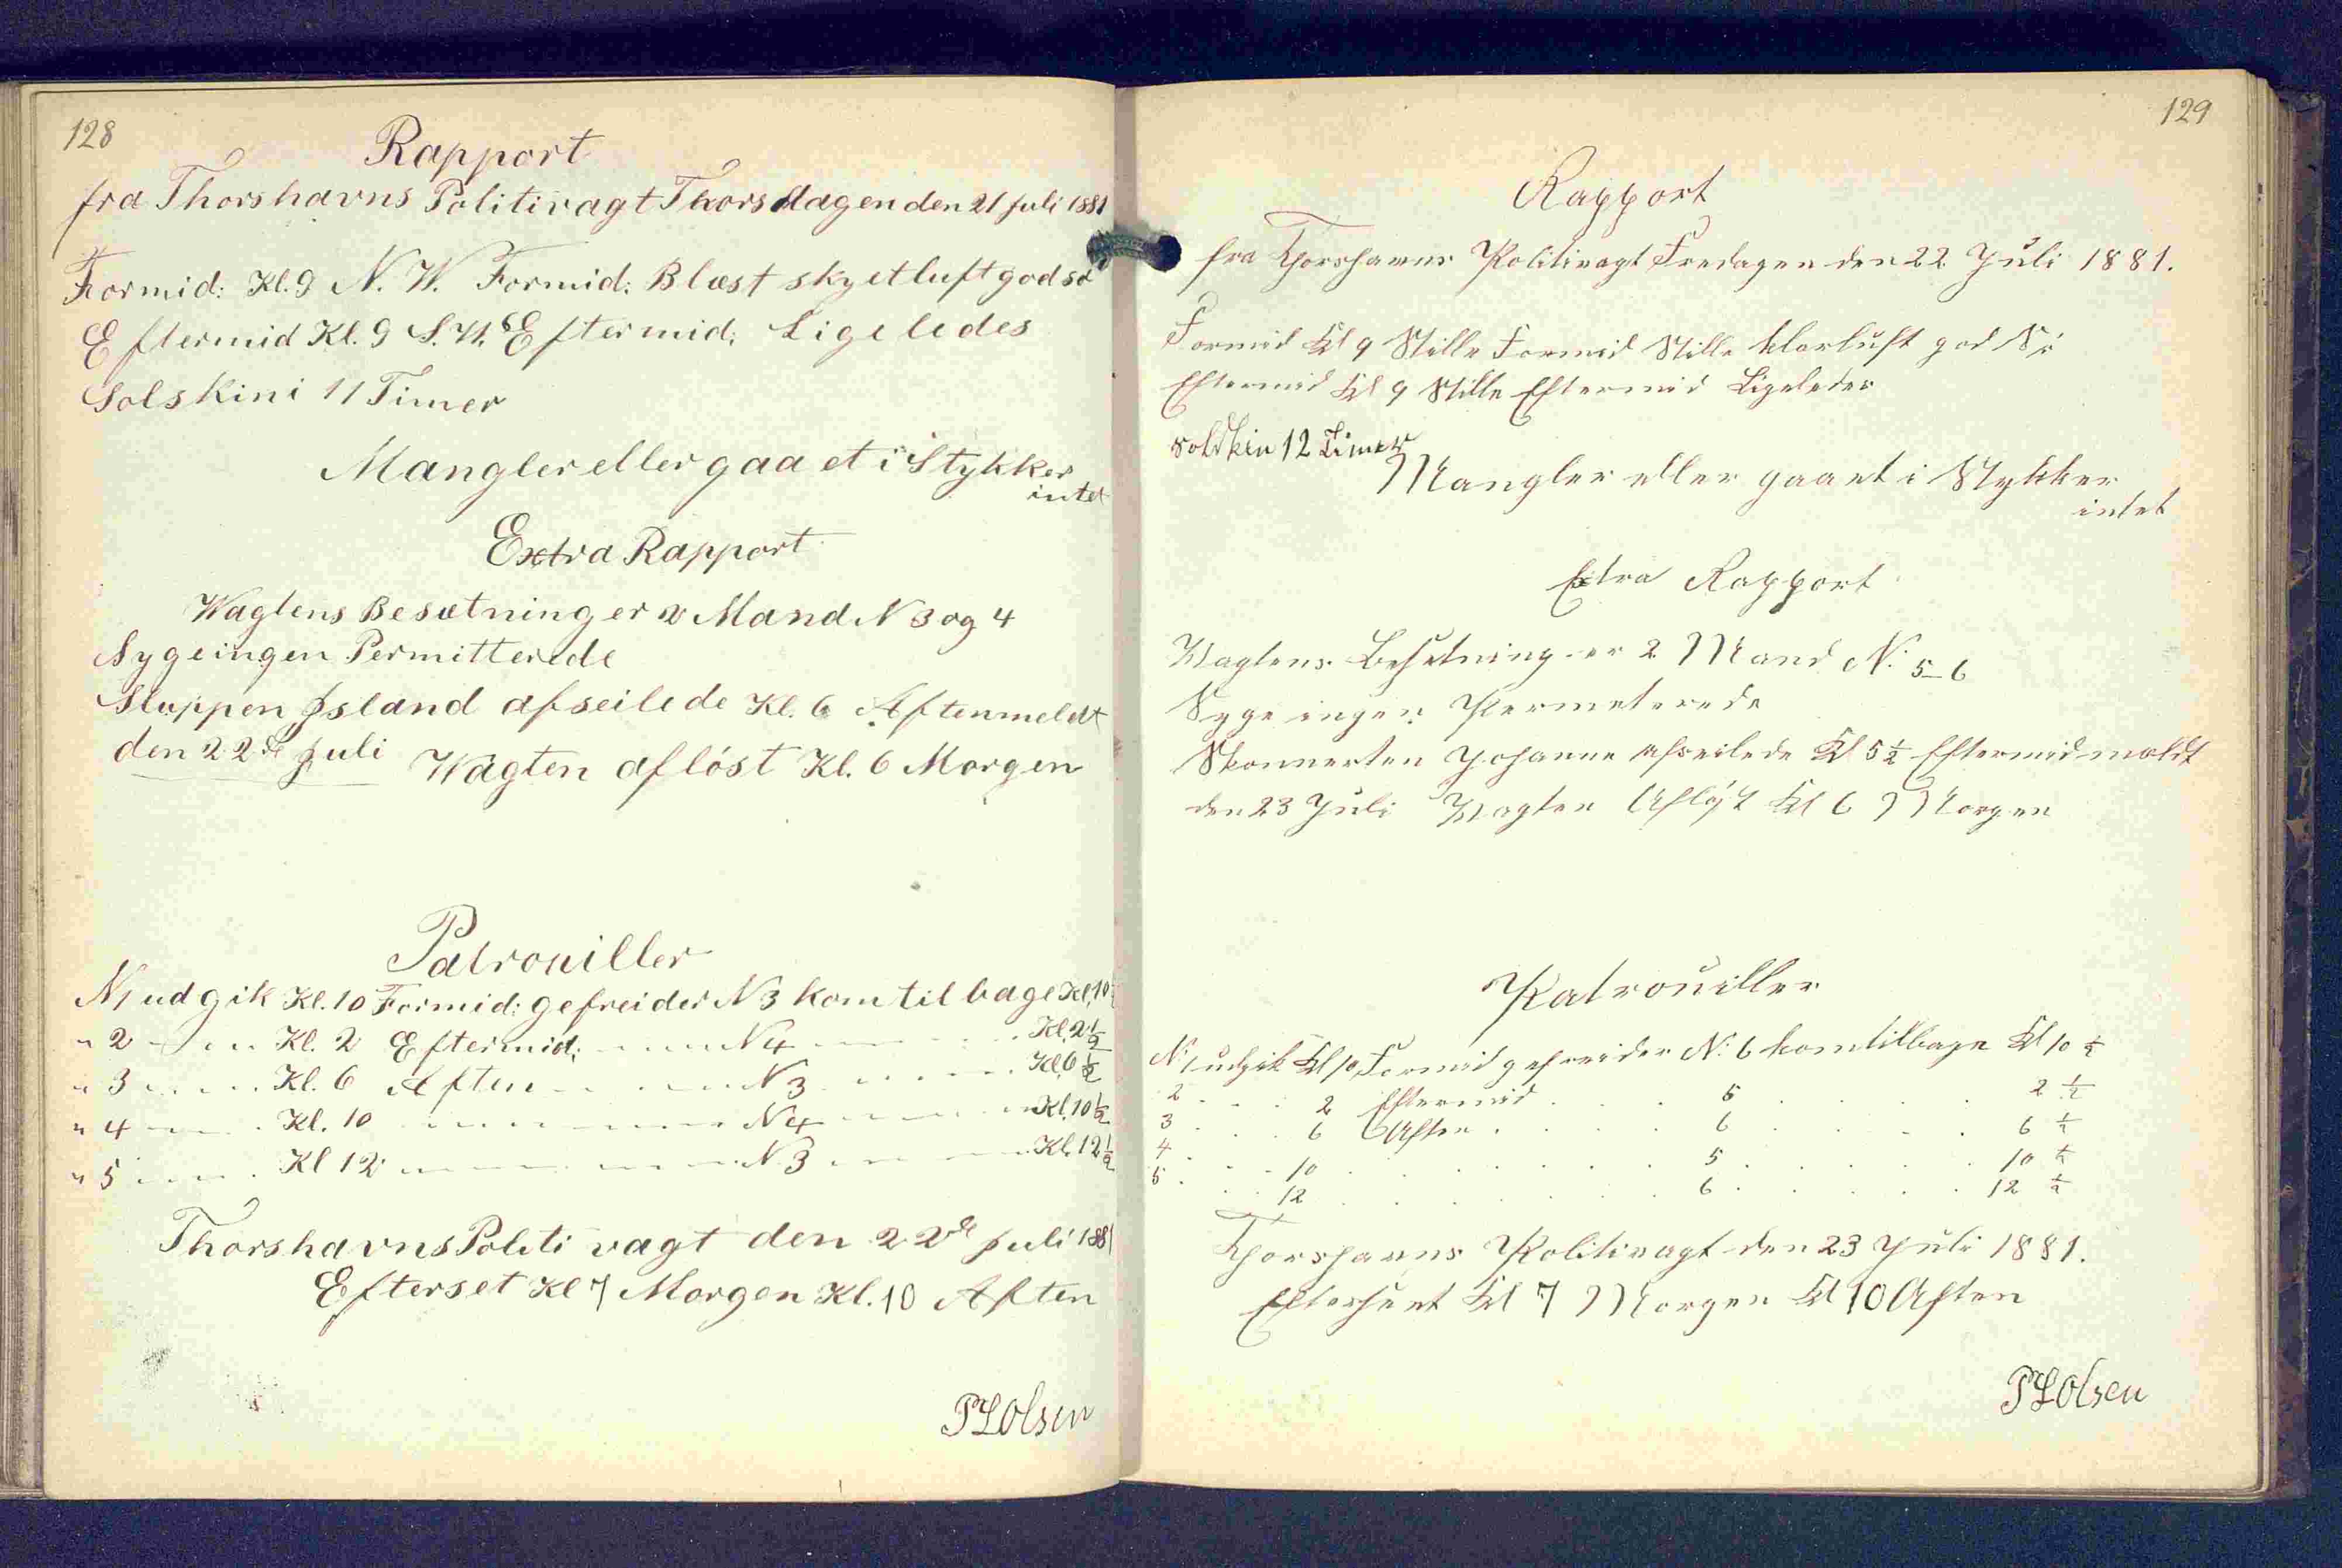 128
Rapport
fra Thorshavns Politivagt Thorsdagen den 21 juli 1881
Formid: Kl. 9 N. W. Formid: Blæst skyetluft god sø
Eftermid Kl. 9 S. W. Eftermid; Ligeledes
Solskin i 11 Timer
Mangler eller gaaet i Stykker
intet
Extra Rapport
Wagtens Besætning er 2 Mand N 3 og 4
Syge ingen Permitterede
Sluppen Island afseilede Kl. 6 Aften meldt
den 22de juli Wagten afløst Kl. 6 Morgen
Patrouiller
N 1 udgik Kl. 10 Formid: gefreider N 3 kom tilbage Kl. 10 1/2
" 2 Kl. 2 Eftermid; N 4 Kl. 2 1/2
" 3 Kl. 6 Aften N 3 Kl. 6 1/2
" 4 Kl. 10 N 4 Kl. 10 1/2
" 5 Kl 12 N 3 Kl. 12 1/2
Thorshavns Politivagt den 22de juli 1881
Efterset Kl 7 Morgen Kl. 10 Aften
PLOlsen
129
Rapport
fra Thorshavns Politivagt Fredagen den 22 Juli 1881.
Formid Kl 9 Stille Formid Stille klarluft god Sø
Eftermid Kl 9 Stille Eftermid Ligeledes
solskin 12 Timer
Mangler eller gaaet i Stykker
intet
Extra Rapport
Wagtens Besetning er 2 Mand N: 5-6
Syge ingen Permeterede
Skonnerten Johanne afseilede Kl 5 1/2 Eftermid meldt
den 23 Juli Wagten Afløst Kl 6 Morgen
Patrouiller
N: 1 udgik Kl 10 Formid gefreider N: 6 kom tilbage Kl 10 1/2
2 . . . 2 Eftermid . . . 5 . . . 2 1/2
3 . . . 6 Aften . . . 6 . . . 6 1/2
4 . . . 10 . . . 5 . . . 10 1/2
5 . . . 12 . . . 6 . . . 12 1/2
Thorshavns Politivagt den 23 Juli 1881.
Efterseet Kl 7 Morgen Kl 10 Aften
PLOlsen